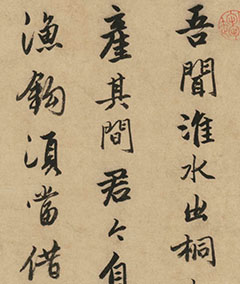 吾聞淮水出桐
產其間君今自
漁鉤湏當借